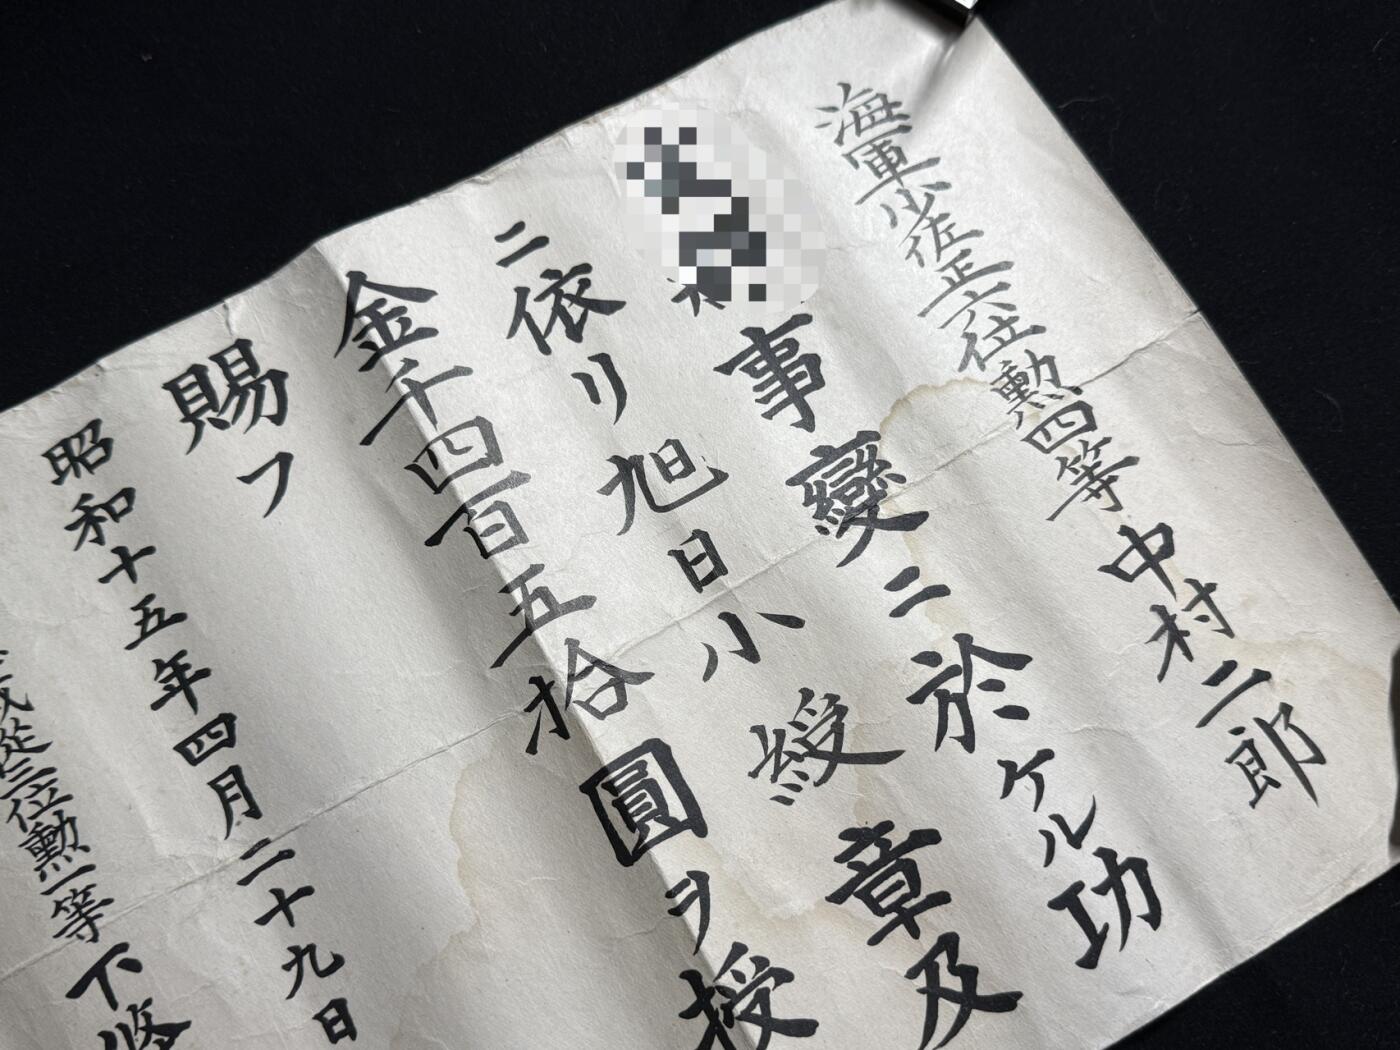 海軍少佐正六位勲四等中村二郎
事變ニ於ケル功
ニ依リ旭日小綬章及
金千四百五拾圓ヲ授
賜フ
昭和十五年四月二十九日
從三位勲一等下